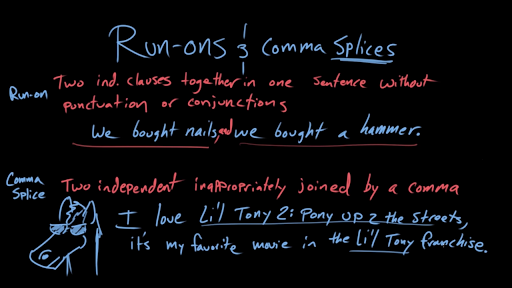 Run-ons & Comma Splices
Run-on
Two ind. clauses together in one sentence without
punctuation or conjunctions
We bought nails, and we bought a hammer.
Comma
Splice
Two independent inappropriately joined by a comma
I love Li'l Tony 2: Pony up 2 the Streets,
it's my favorite movie in the Li'l Tony franchise.